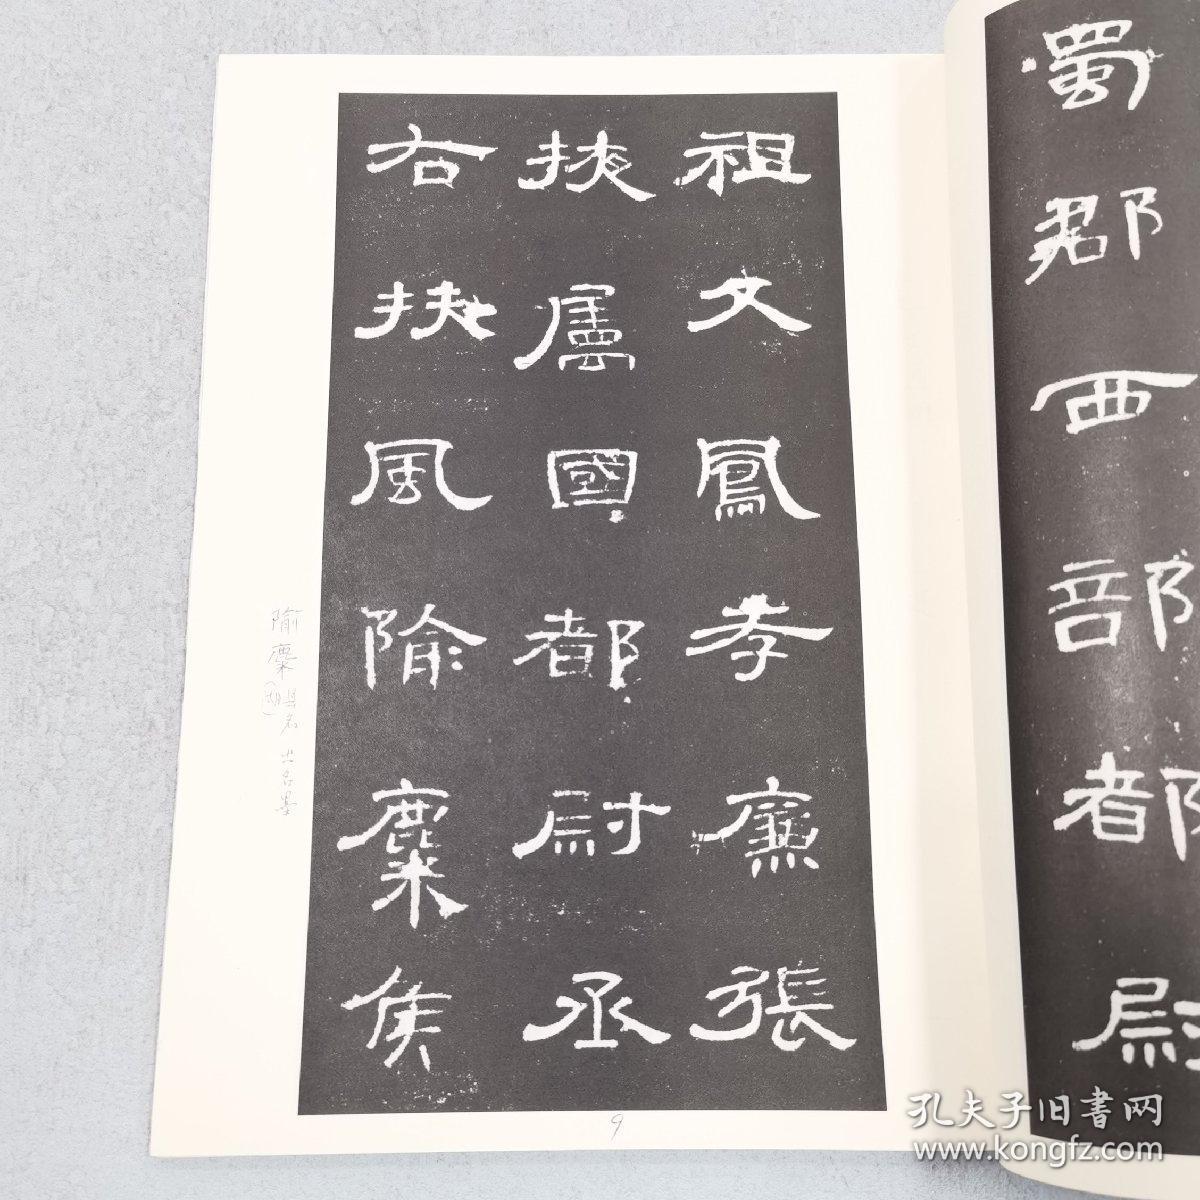 蜀郡西部都尉
祖父鳳孝廉張
掖屬國都尉丞
右扶風隃麋侯
隃麋 县名 出名墨
9
孔夫子旧書网
www.kongfz.com